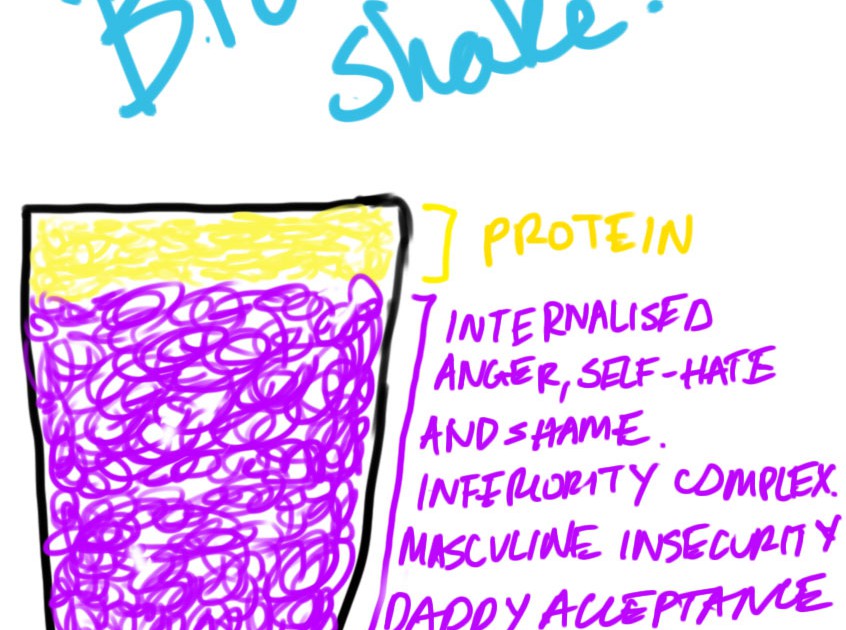 shake!
PROTEIN
INTERNALISED
ANGER, SELF-HATE
AND SHAME.
INFERIORITY COMPLEX.
MASCULINE INSECURITY
DADDY ACCEPTANCE